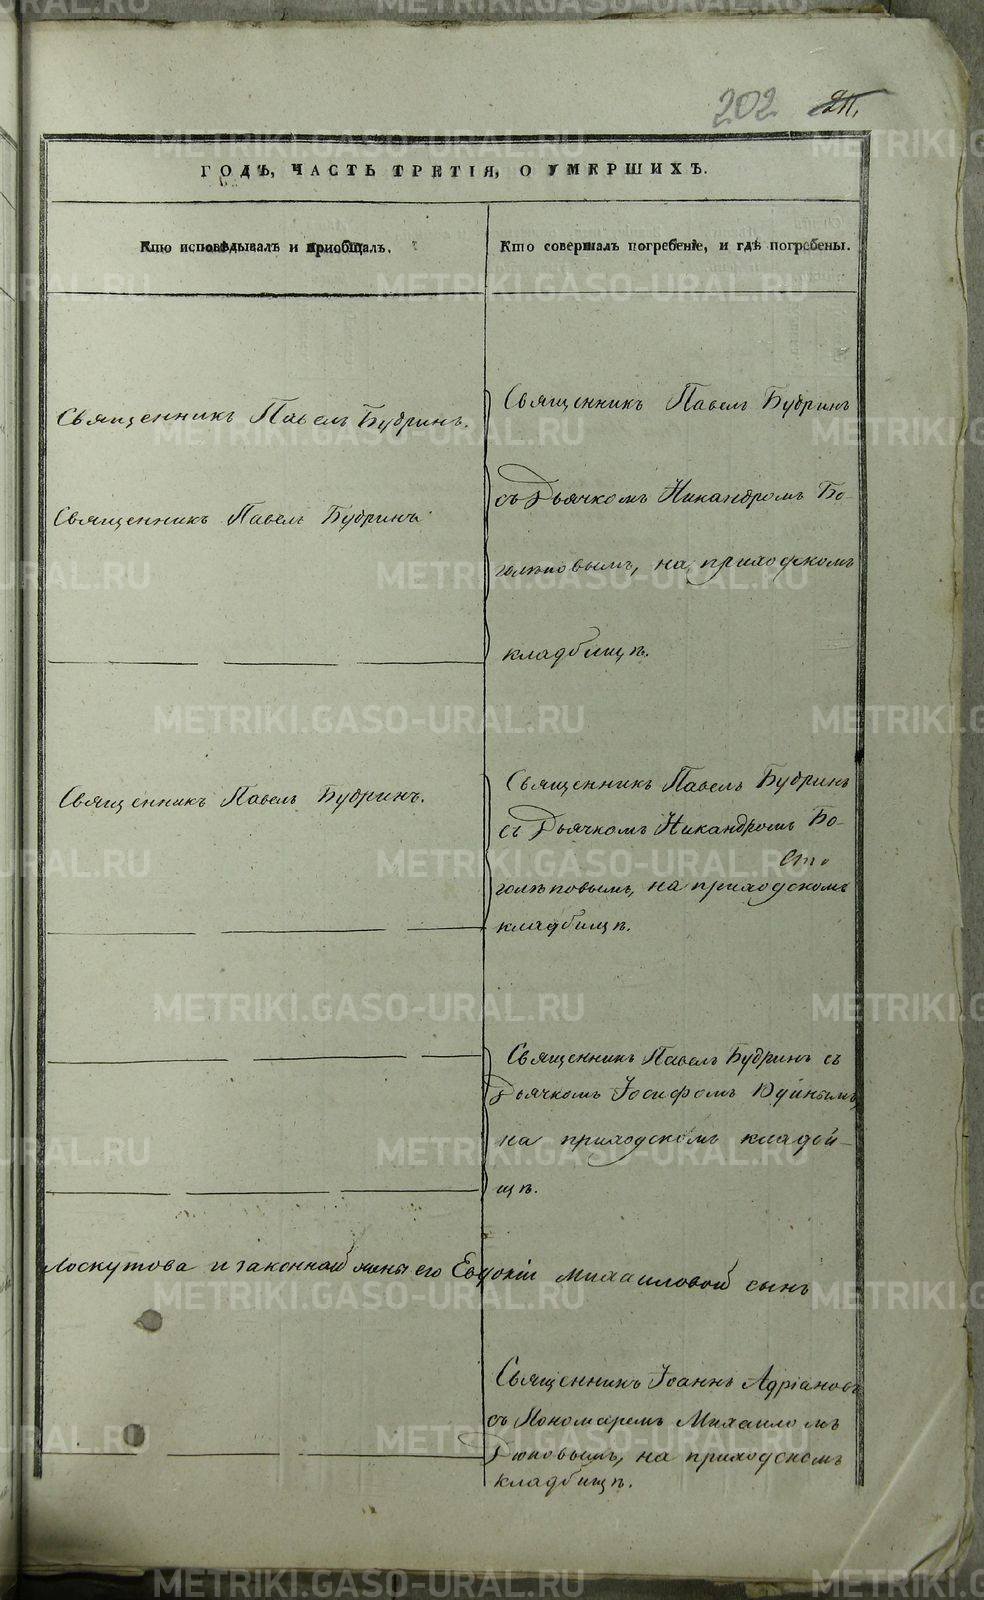 202 211.
ГОДЪ, ЧАСТЬ ТРЕТІЯ, О УМЕРШИХЪ.
Кто исповѣдывалъ и приобщалъ.
Кто совершалъ погребеніе, и гдѣ погребены.
Священникъ Павелъ Будринъ.
Священникъ Павелъ Будринъ
Священникъ Павелъ Будринъ
съ Дьячкомъ Никандромъ Бо-
голѣповымъ, на приходскомъ
кладбищѣ.
Священникъ Павелъ Будринъ.
Священникъ Павелъ Будринъ
съ Дьячкомъ Никандромъ Бо-
голѣповымъ, на приходскомъ
кладбищѣ.
Священникъ Павелъ Будринъ съ
Дьячкомъ Іосифомъ
на приходскомъ кладби-
щѣ.
Лоскутова и законной жены его Евдокіи Михаиловой сынъ
Священникъ Іоаннъ Адріановъ
съ Пономаремъ Михаиломъ
на приходскомъ
кладбищѣ.
METRIKI.GASO-URAL.RU